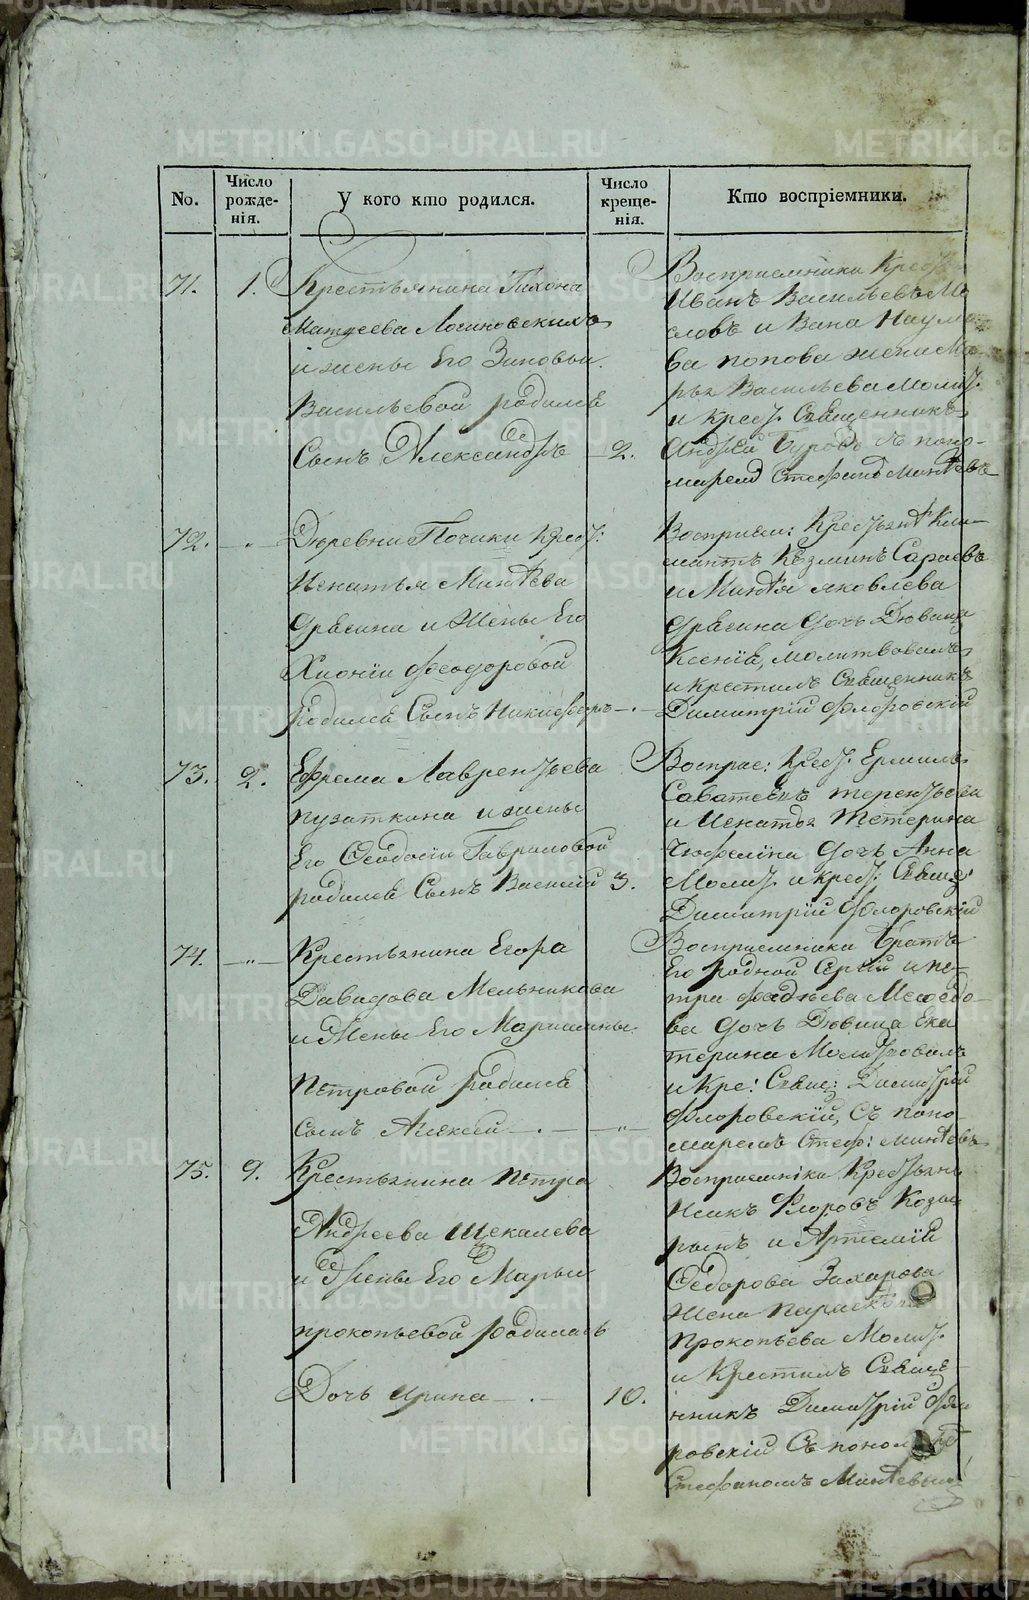 No.
Число рожде-нія.
У кого кто родился.
Число креще-нія.
Кто воспріемники.
71.
1.
Крестьянина Тихона
Матѳеева Логиновскихъ
и жены Его Зиновьи
Васильевой родился
Сынъ Александръ
2.
Восприемники Крест
Иванъ Васильевъ Мо
словъ и Вана Наумо
ва попова жена Ма
рья Васильева молит.
и крест. Священникъ
Андрей Буровъ съ поно-
марем Стефаномъ
72.
"
Деревни Почики Крест:
Игнатья Минѣева
и Жены Его
Хионіи Феодоровой
Родился Сынъ Никифоръ
Восприем: Крестьянъ Кли-
ментъ Козминъ Сараевъ
и Минѣя Яковлева
дочь Девица
Ксенія, молитвовалъ
и крестилъ Священникъ
Димитрій Флоровскій
73.
2.
Ефрема Лаврентьева
пузаткина и жены
Его Ѳеодосіи Гавриловой
родился Сынъ Василій
3.
Воспрае: Крест. Ермилъ
терентьева
и Игнатья Тетерина
дочь Анна
Молит. и крест. Священ:
Димитрій Флоровскій
74.
"
Крестьянина Егора
Давыдова Мельникова
и Жены Его Марианны
Петровой родился
сынъ Алексей
"
Восприемники Братъ
Его родной Сергій и пе-
тра Фадѣева Меѳедо-
ва дочь Девица Ека
терина Молитвовалъ
и Кре: Свящ: Димитрій
Флоровскій, Съ поно-
маремъ Стеф: Минѣевъ
75.
9.
Крестьянина петра
Андреева Щекалева
и Жены Его Марьи
прокопьевой родилась
Дочь Ирина
10.
Восприемніки Крестьянъ
Исакъ Флоровъ Козы
рынъ и Артемій
Ѳедорова Захарова
жена Параскѣвія
Прокопьева Молит.
и Крестилъ Священ-
нникъ Димитрій Фло
ровскій Съ поном
Стефаномъ Минѣевым
METRIKI.GASO-URAL.RU